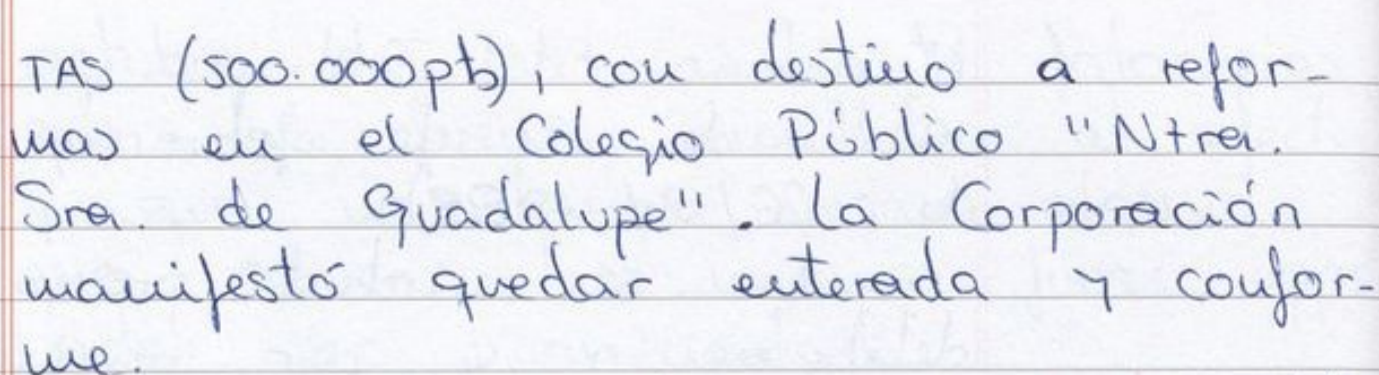 TAS (500.000pts), con destino a refor-
mas en el Colegio Público "Ntra.
Sra. de Guadalupe". La Corporación
manifestó quedar enterada y confor-
me.